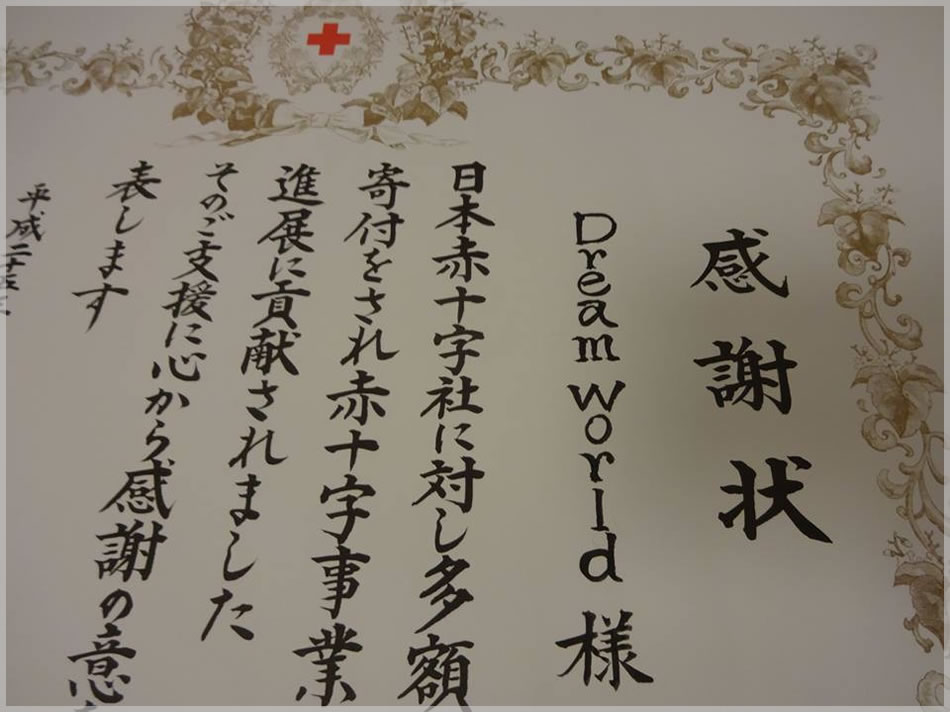 感謝状
Dream world 様
日本赤十字社に対し多額
寄付をされ赤十字事業
進展に貢献されました
そのご支援に心から感謝の意
表します
平成二十五